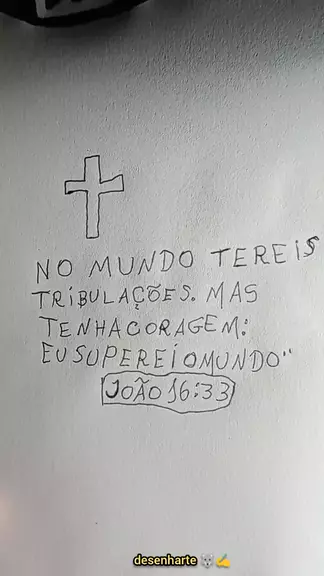 NO MUNDO TEREIS
TRIBULAÇÕES. MAS
TENHACORAGEM:
EU SUPEREI O MUNDO"
JOÃO 16:33
desenharte 🐺✍️